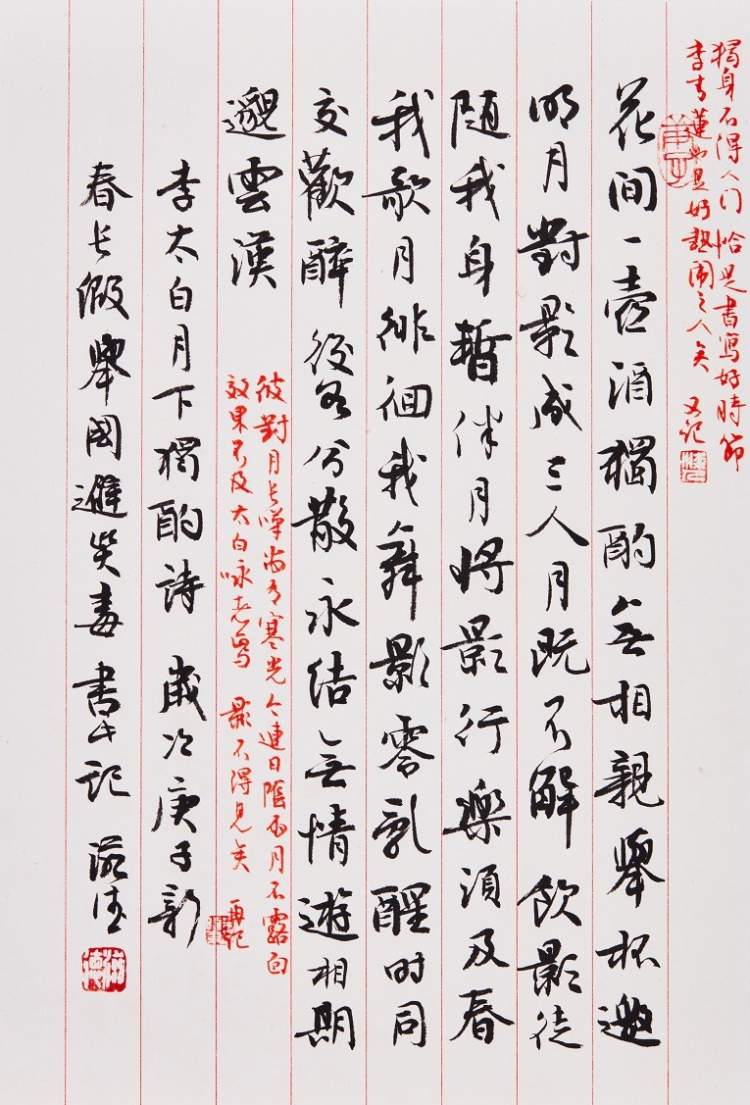 獨身不得门 恰是書寫好時節
李青蓮是好熱鬧之人矣 又記
庚子
花间一壺酒獨酌無相親舉杯邀
明月對影成三人月既不解飲影徒
随我身暫伴月將影行樂須及春
我歌月徘徊我舞影零亂醒时同
交歡醉後各分散永结無情遊相期
邈雲漢
彼對月長嘆尚有寒光今連日陰雨月不露白
效果不及太白咏者焉 影不得見矣 再記
李太白月下獨酌詩 歲次庚子新
春長假舉國避災毒 書此記 滋德
滋德